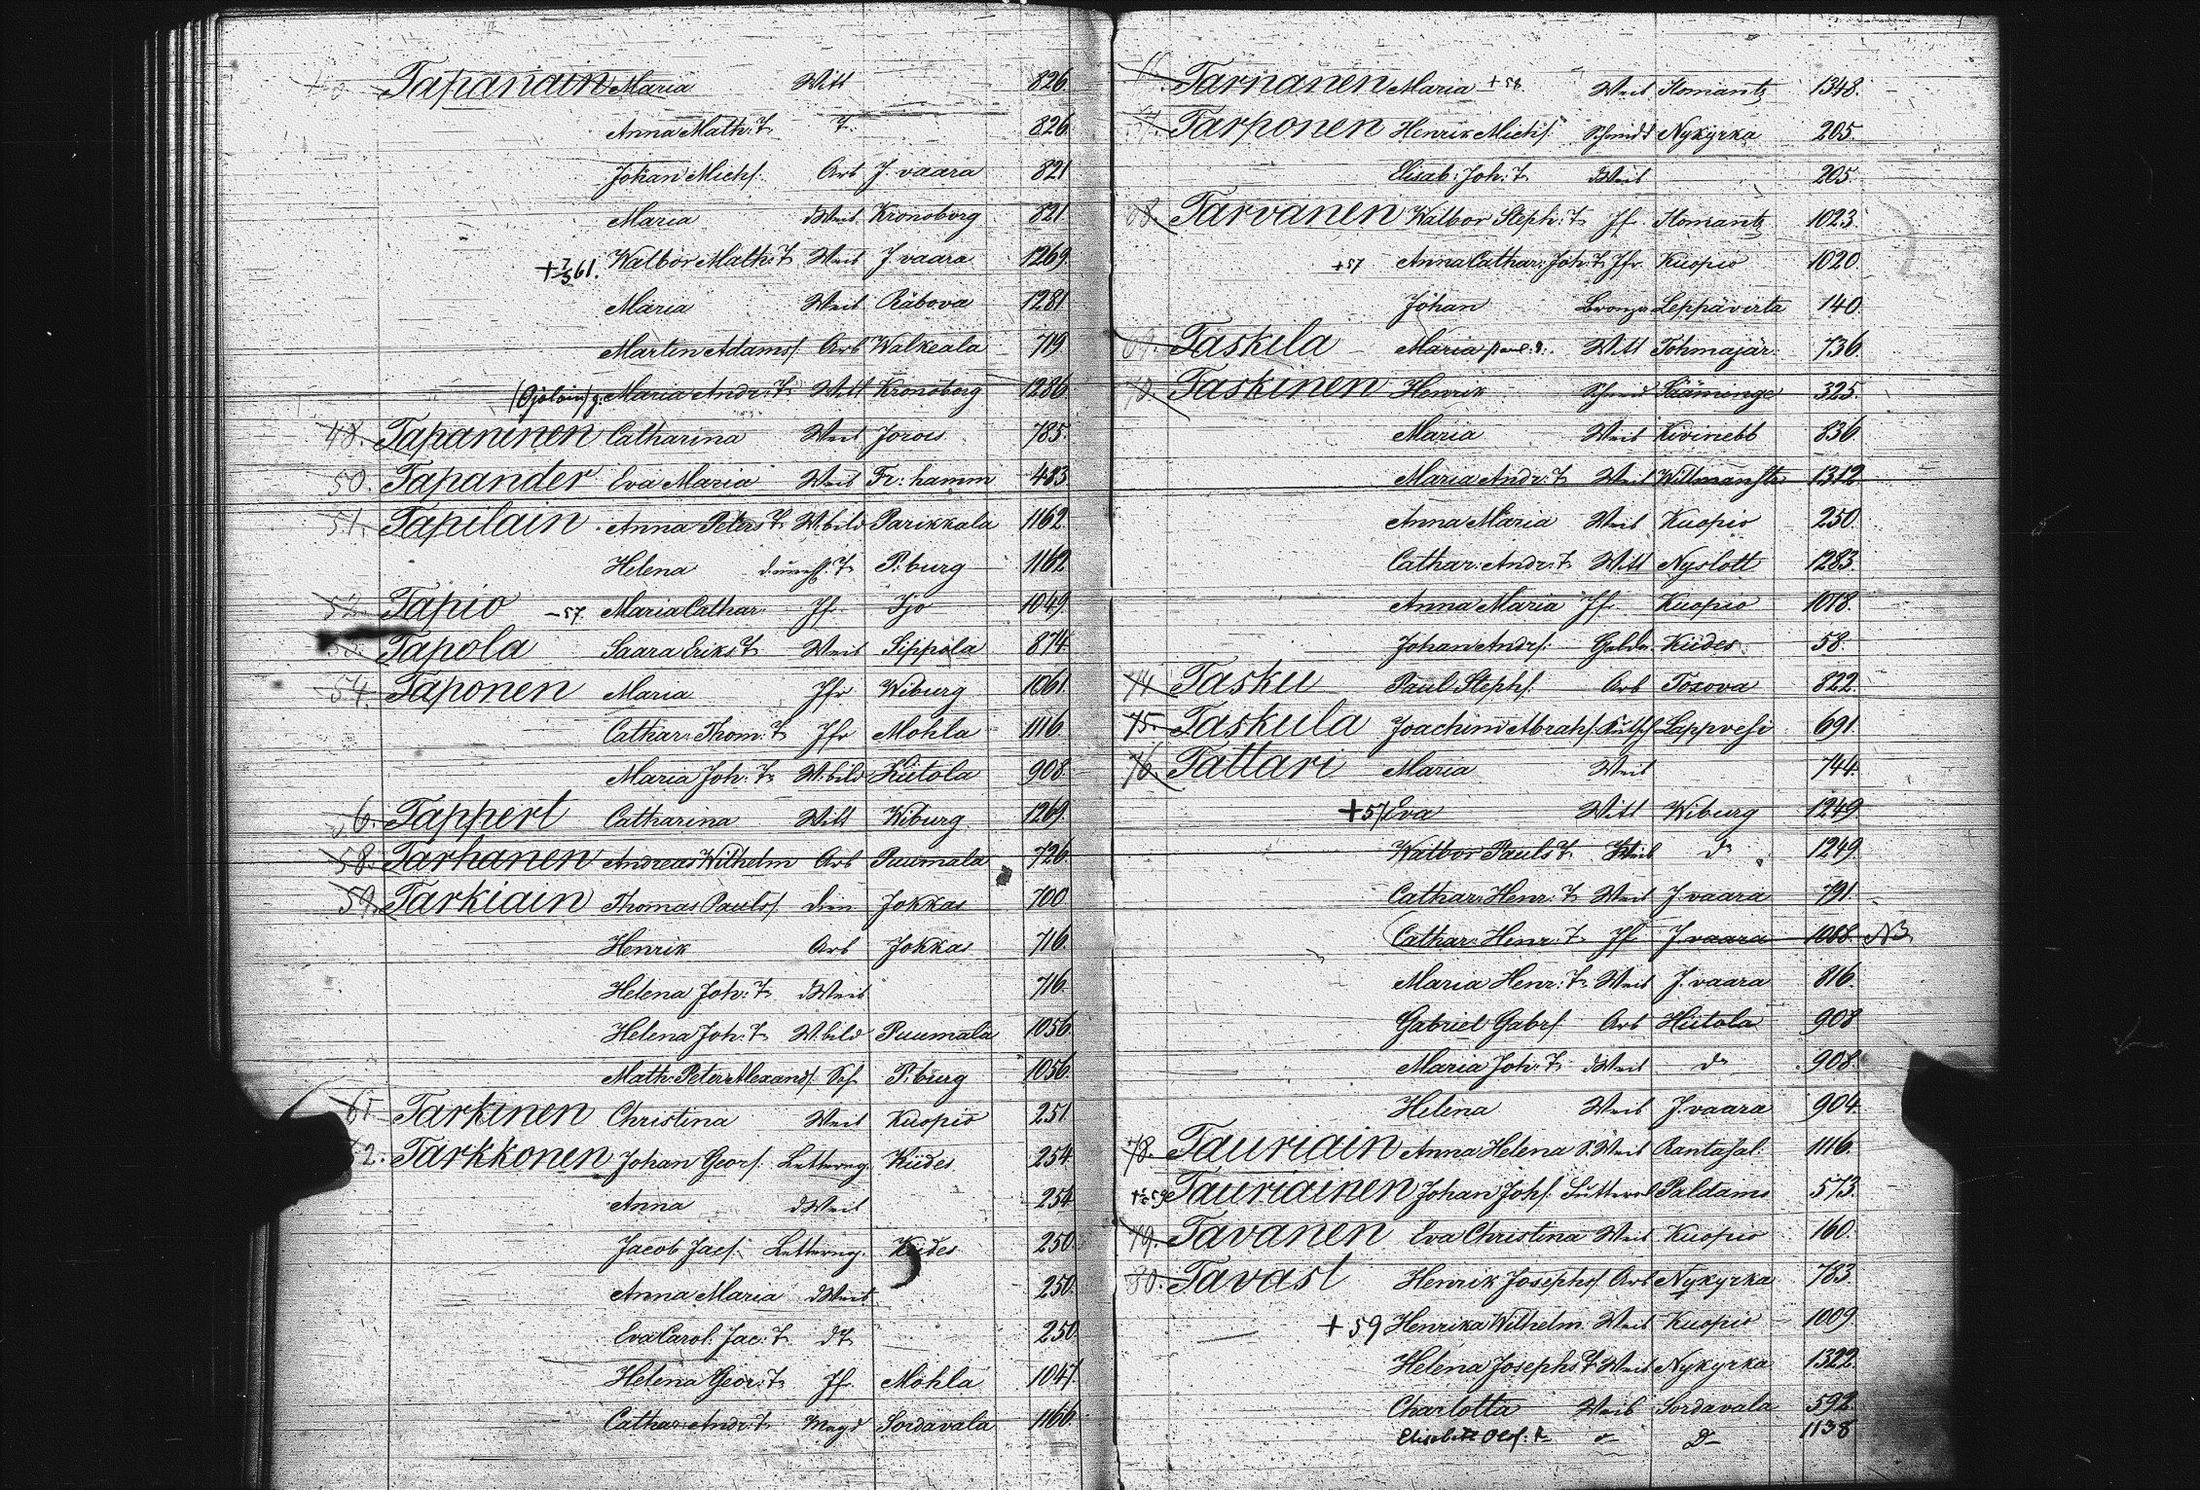 Tapanain Maria Witt 826.
Anna Math: T. T. 826
Johan Michs. Arb J. vaara 821
Maria dWeib Kronoborg 821.
+ 7/3 61. Walbor Math: T. Weib J vaara 1269.
Maria Weib Räbova 1281
Martin Adams. Arb Walkeala 719
Maria Andr: T. Witt Kronoborg 1286.
48. Tapaninen Catharina Weib Jorois 785.
50. Tapander Eva Maria Weib Fr: hamm 483
51. Tapilain Anna Peters T. W.bild Parikkala 1162
Helena T. P: burg 1162
52. Tapio -57. Maria Cathar. Jf. Ijo 1049.
Tapola Saara Eriks T. Weib Sippola 874.
54. Taponen Maria Jfr Wiburg 1061.
Cathar: Thom: T. Jfr Mohla 1116.
Maria Joh: T. W.bild Hiitola 908.
6. Tappert Catharina Witt Wiburg 1269.
58. Tarhanen Andreas Wilhelm Arb Puumala 726
59. Tarkiain Thomas Pauls. dim Jokkas 700
Henrik Arb Jokkas 716.
Helena Joh: T. dWeib 716.
Helena Joh: T. W.bild Puumala 1056.
Math: Peter Alexand. P: burg 1056.
61. Tarkinen Christina Weib Kuopio 251
62. Tarkkonen Johan Geors. Letterng. Kides 254
Anna dWeib 254
Jacob Jacs. Letterng. Kides 250
Anna Maria dWeib. 250.
Eva Carol: Jac: T. dT. 250
Helena Geor: T. Jf. Mohla 1047.
Cathar: Andr: T. Magd Sordavala 1166
Tarnanen Maria +58. Weib Ilomants 1348.
67. Tarponen Henrik Michs. Schmidt Nykyrka 205.
Elisab: Joh: T. dWeib 205.
68. Tarvanen Walbor Steph: T. Jf. Ilomants 1023.
+57 Anna Cathar: Joh: T. Jfr. Kuopio 1020.
Johan Leppävirta 140.
69. Taskila Maria Paul: d: Witt Tohmajär. 736.
70. Taskinen Henrik Schmid Sääminge 325.
Maria Weib Kivinebb 836
Maria Andr: T. Weib Willmanstr 1312
Anna Maria Weib Kuopio 250.
Cathar: Andr: T. Witt Nyslott 1283.
Anna Maria Jf. Kuopio 1078.
Johan Andrs. Kides 58.
74 Tasku Paul Stephs. Arb Toxova 822
75. Taskula Joachim Abrahs. Kutsch Lappvesi 691.
76. Tattari Maria Weib 744.
+57 Eva Witt Wiburg 1249.
Walbor Pauls T. Weib do 1249.
Cathar: Henr: T. Weib J. vaara 791.
Cathar: Henr: T. Jf J. vaara 1088. NB
Maria Henr: T. Weib J. vaara 816.
Gabriel Gabrs. Arb Hiitola 908
Maria Joh: T. dWeib do 908.
Helena Weib J. vaara 904
78. Tauriain Anna Helena S. Weib Rantasal: 1116.
Tauriainen Johan Johs. Paldams 573.
79. Tavanen Eva Christina Weib Kuopio 160.
80. Tavast Henrik Josephs. Arb Nykyrka 783.
+ 59 Henrika Wilhelm. Weib Kuopio 1009
Helena Josephs T. Weib Nykyrka 1322.
Charlotta Weib Sordavala 592.
Elisabeth Olof: T. D- 1138